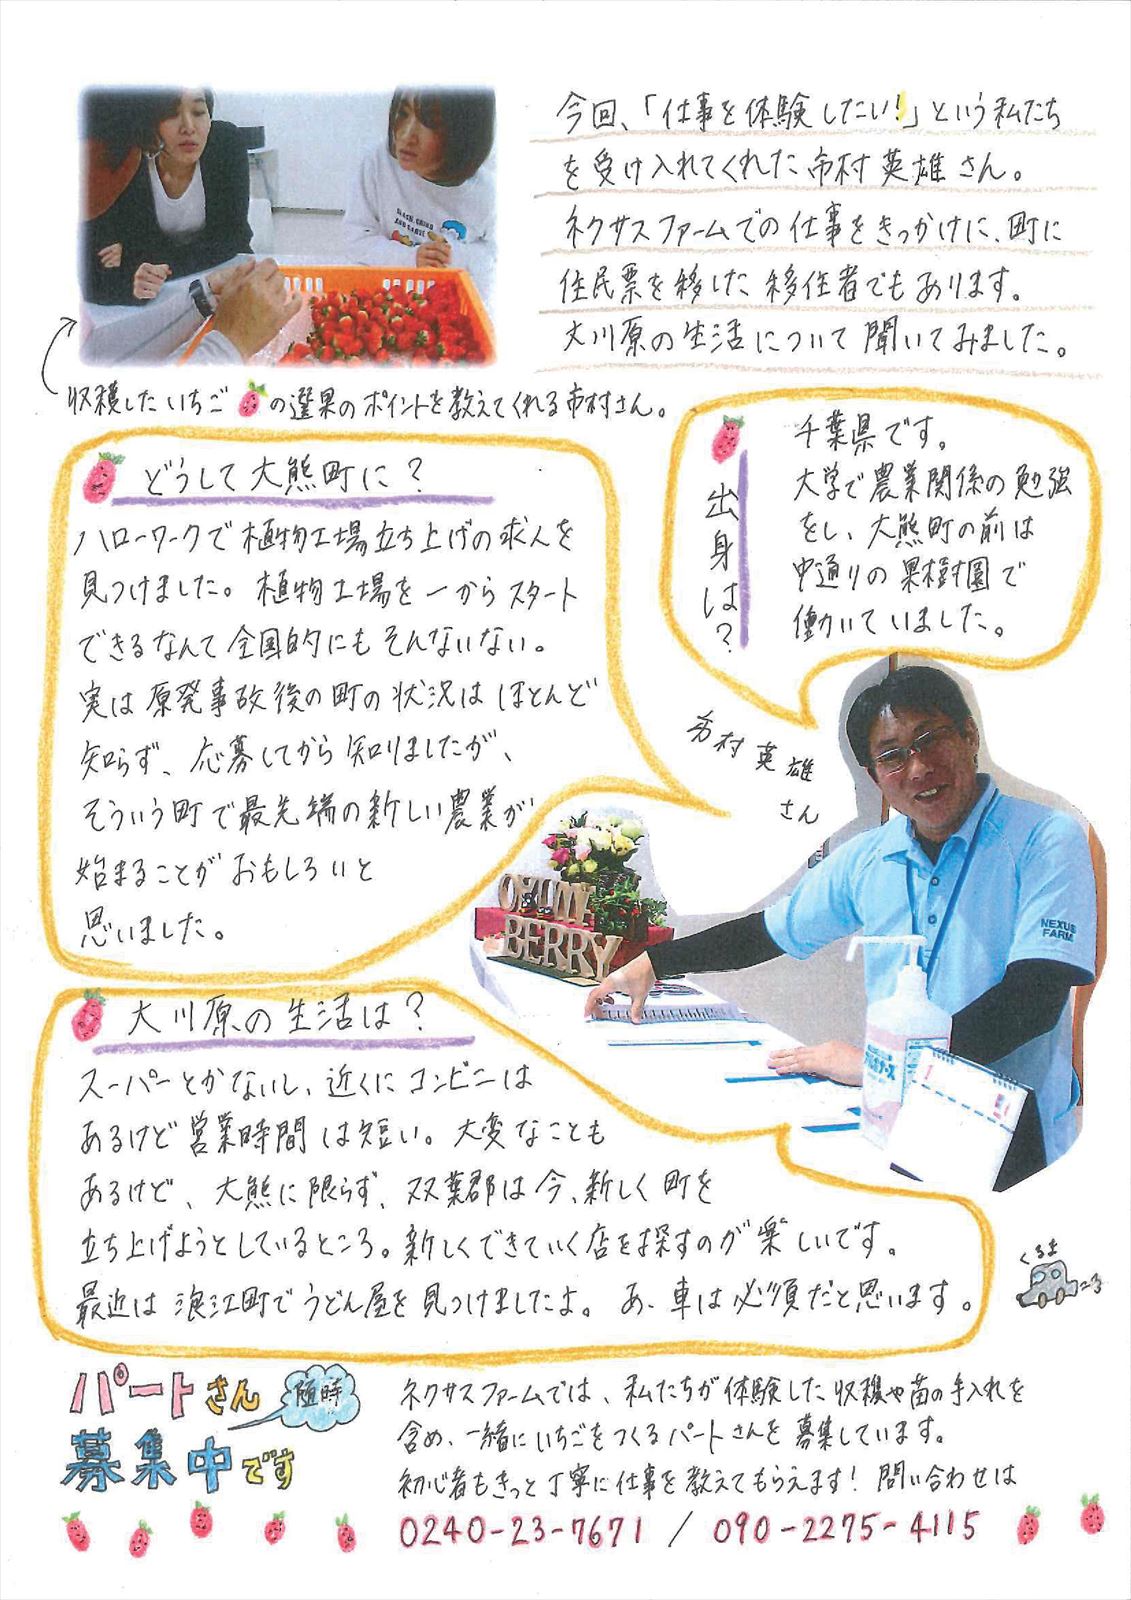 今回、「仕事を体験したい!」という私たち
を受け入れてくれた市村英雄さん。
ネクサスファームでの仕事をきっかけに、町に
住民票を移した移住者でもあります。
大川原の生活について聞いてみました。
収穫したいちごの選果のポイントを教えてくれる市村さん。
出身は?
千葉県です。
大学で農業関係の勉強
をし、大熊町の前は
中通りの果樹園で
働いていました。
どうして大熊町に?
ハローワークで植物工場立ち上げの求人を
見つけました。植物工場を一からスタート
できるなんて全国的にもそんないない。
実は原発事故後の町の状況はほとんど
知らず、応募してから知りましたが、
そういう町で最先端の新しい農業が
始まることがおもしろいと
思いました。
市村英雄
さん
BERRY
NEXUS
FARM
大川原の生活は?
スーパーとかないし、近くにコンビニは
あるけど営業時間は短い。大変なことも
あるけど、大熊に限らず、双葉郡は今、新しく町を
立ち上げようとしているところ。新しくできていく店を探すのが楽しいです。
最近は浪江町でうどん屋を見つけましたよ。あ、車は必須だと思います。
くるま
パートさん
随時
募集中です
ネクサスファームでは、私たちが体験した収穫や苗の手入れを
含め、一緒にいちごをつくるパートさんを募集しています。
初心者もきっと丁寧に仕事を教えてもらえます!問い合わせは
0240-23-7671 / 090-2275-4115